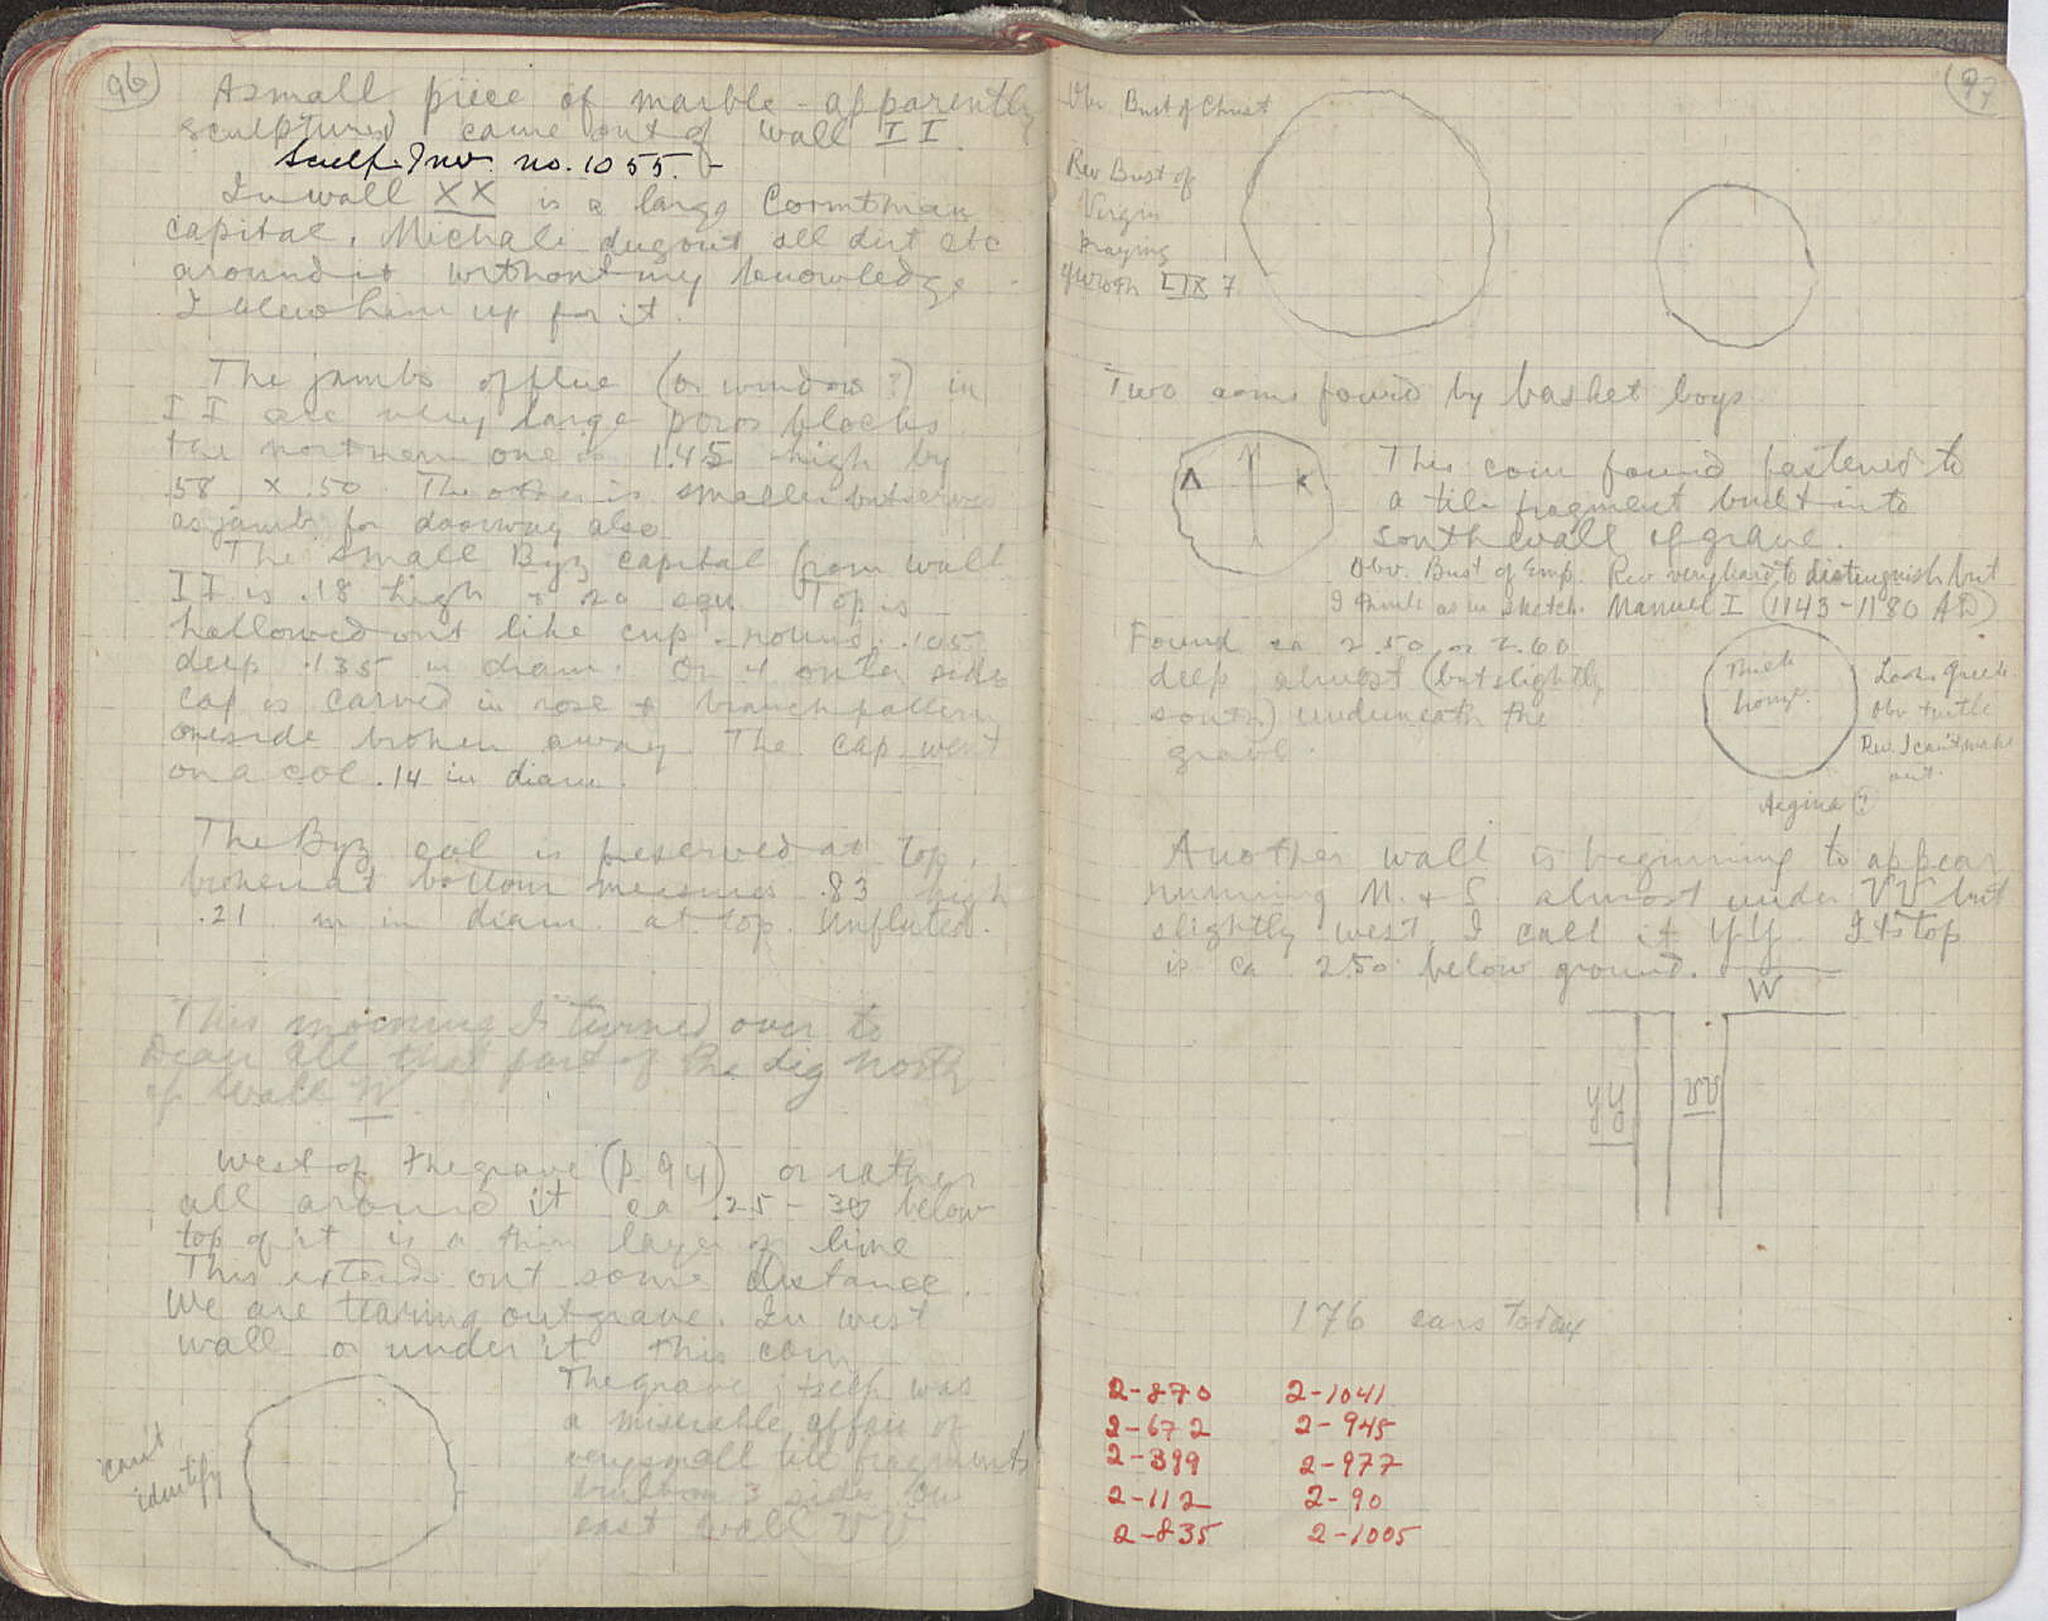 96
A small piece of marble - apparently
sculptured came out of wall II.
Sculp. Inv. no. 1055.
In wall XX is a large Corinthian
capital. Michali dug out all dirt etc
around it without my knowledge
I blew him up for it.
The jambs of flue (or window?) in
II are very large poros blocks
the northern one is 1.45 high by
.58 x .50. The other is smaller but serves
as jamb for doorway also
The small Byz capital from wall
II is .18 high + 20 squ. Top is
hollowed out like cup - round. .105
deep .135 in diam. On 4 outer side
cap is carved in rose + branch pattern
one side broken away. The cap went
on a col .14 in diam.
The Byz col is preserved at top,
broken at bottom measures .83 high
.21 m in diam. at top. Unfluted.
This morning I turned over to
Dean all that part of the dig north
of wall W
West of the grave (p. 94) or rather
all around it ca .25 - 30 below
top of it is a thin layer of lime
This extends out some distance.
We are tearing out grave. In west
wall or under it this coin
The grave itself was
a miserable affair of
very small tile fragments
built on 3 sides on
east wall VV
can't
identify
97
Obv. Bust of Christ
Rev Bust of
Virgin
praying
Wroth LIX 7
Two coins found by basket boys
Λ K
This coin found fastened to
a tile fragment built into
south wall of grave.
Obv. Bust of Emp. Rev very hard to distinguish but
I think as in sketch. Manuel I (1143-1180 AD)
Found ca 2.50 or 2.60
deep almost (but slightly
south) underneath the
grave.
Thick
bronze.
Looks Greek
Obv turtle
Rev. I can't make
out.
Aegina (?)
Another wall is beginning to appear
running N. + S. almost under VV but
slightly west. I call it YY. Its top
is ca 2.50 below ground.
W
YY
VV
176 cars today
2-870 2-1041
2-672 2-945
2-399 2-977
2-112 2-90
2-835 2-1005